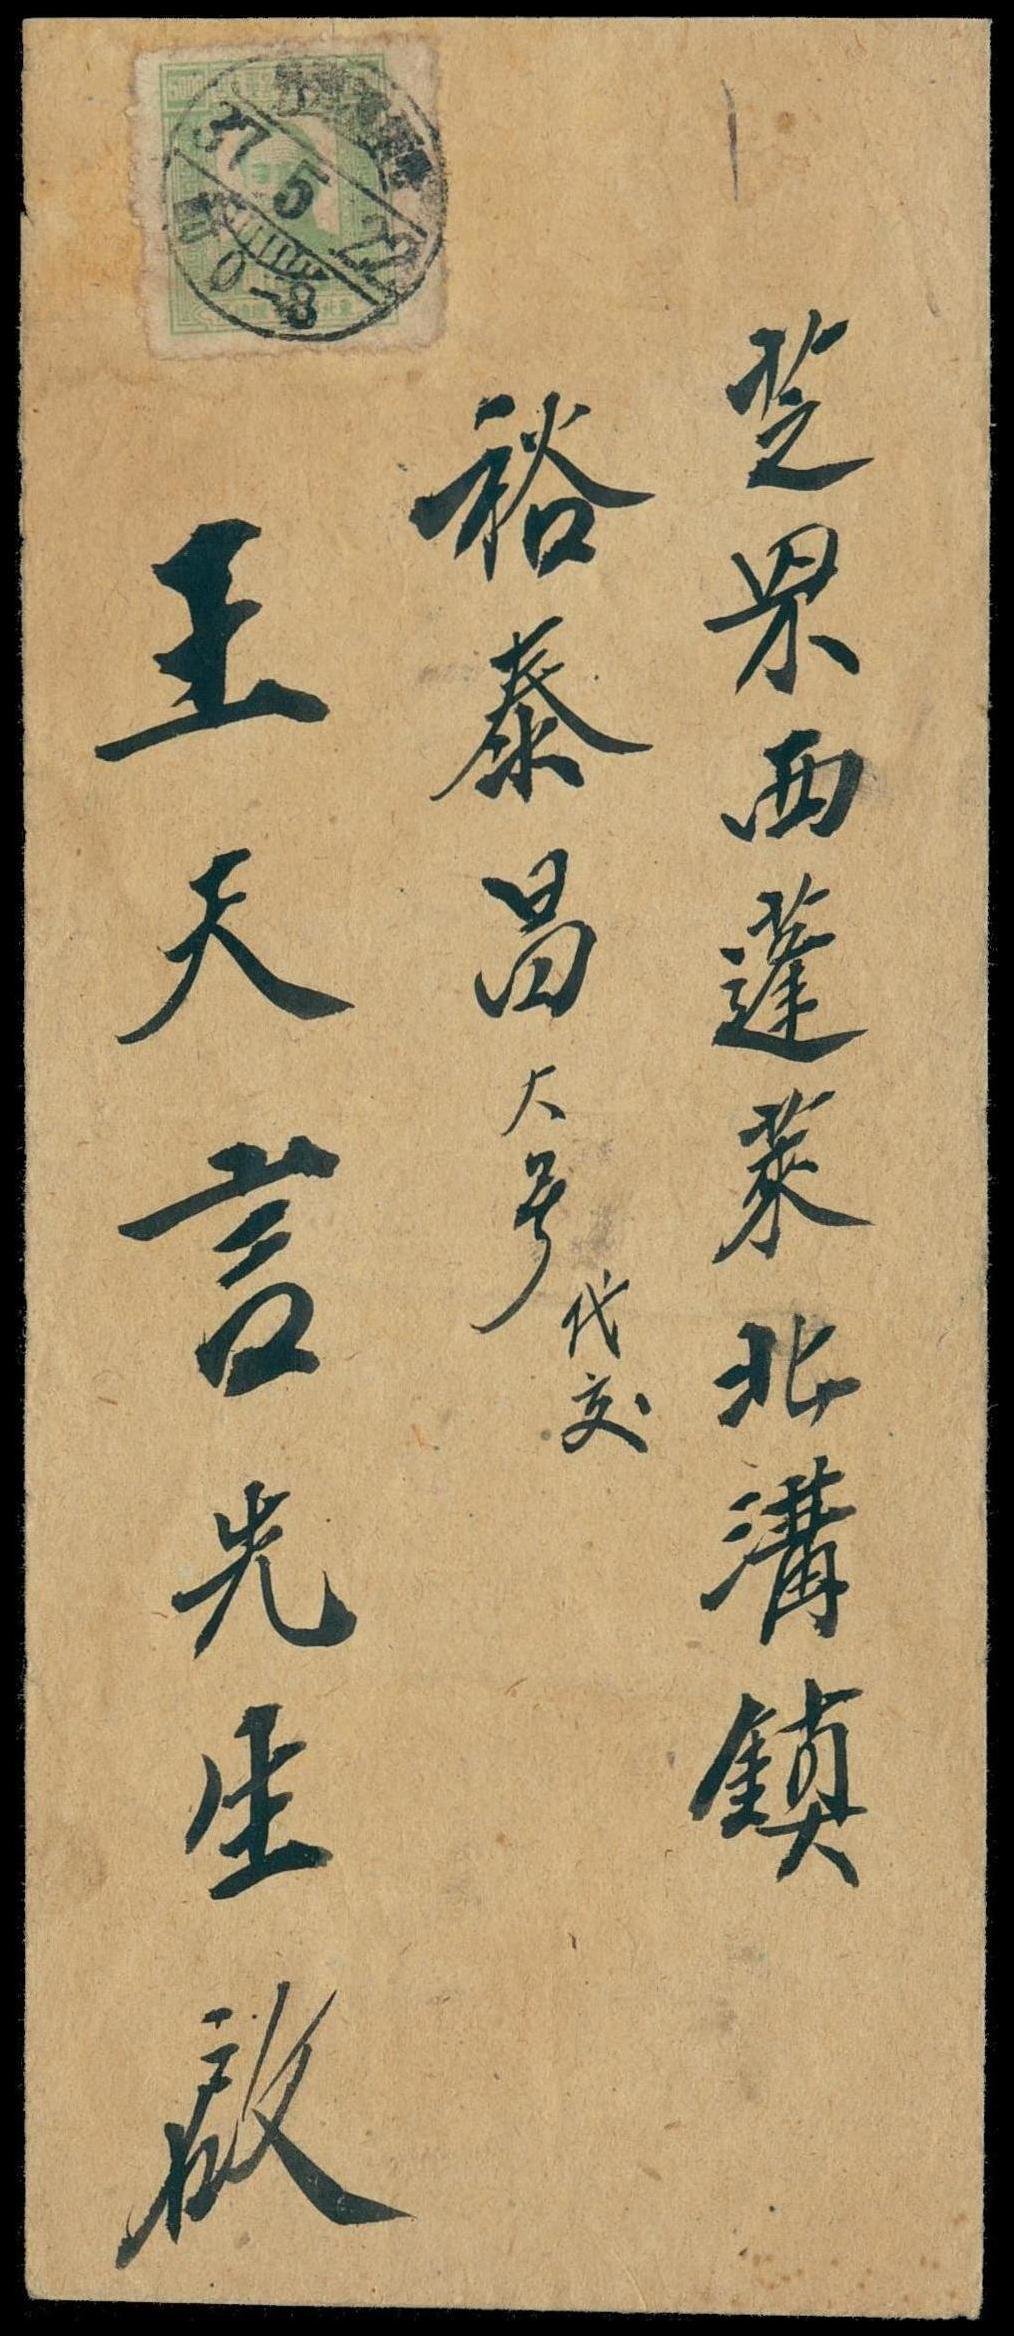 芝罘西蓬萊北溝鎮
裕泰昌大号
代交
王天言先生啟
37 5 22
0-8